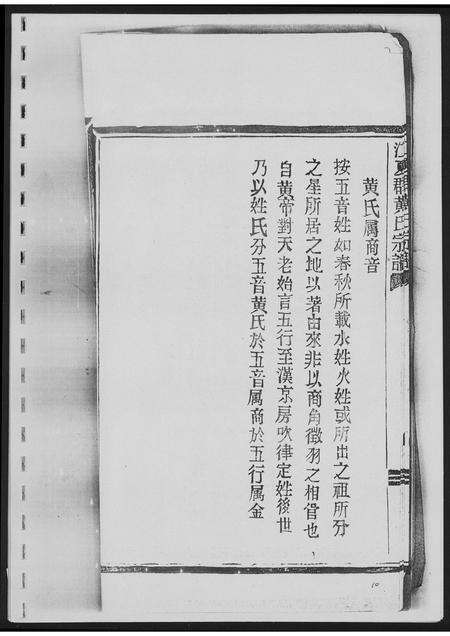 江夏郡黃氏宗譜
黃氏属商音
按五音姓如春秋所載水姓火姓或所出之祖所分
之星所居之地以著由來非以商角徵羽之相管也
自黃帝對天老始言五行至漢京房吹律定姓後世
乃以姓氏分五音黃氏於五音属商於五行属金
10